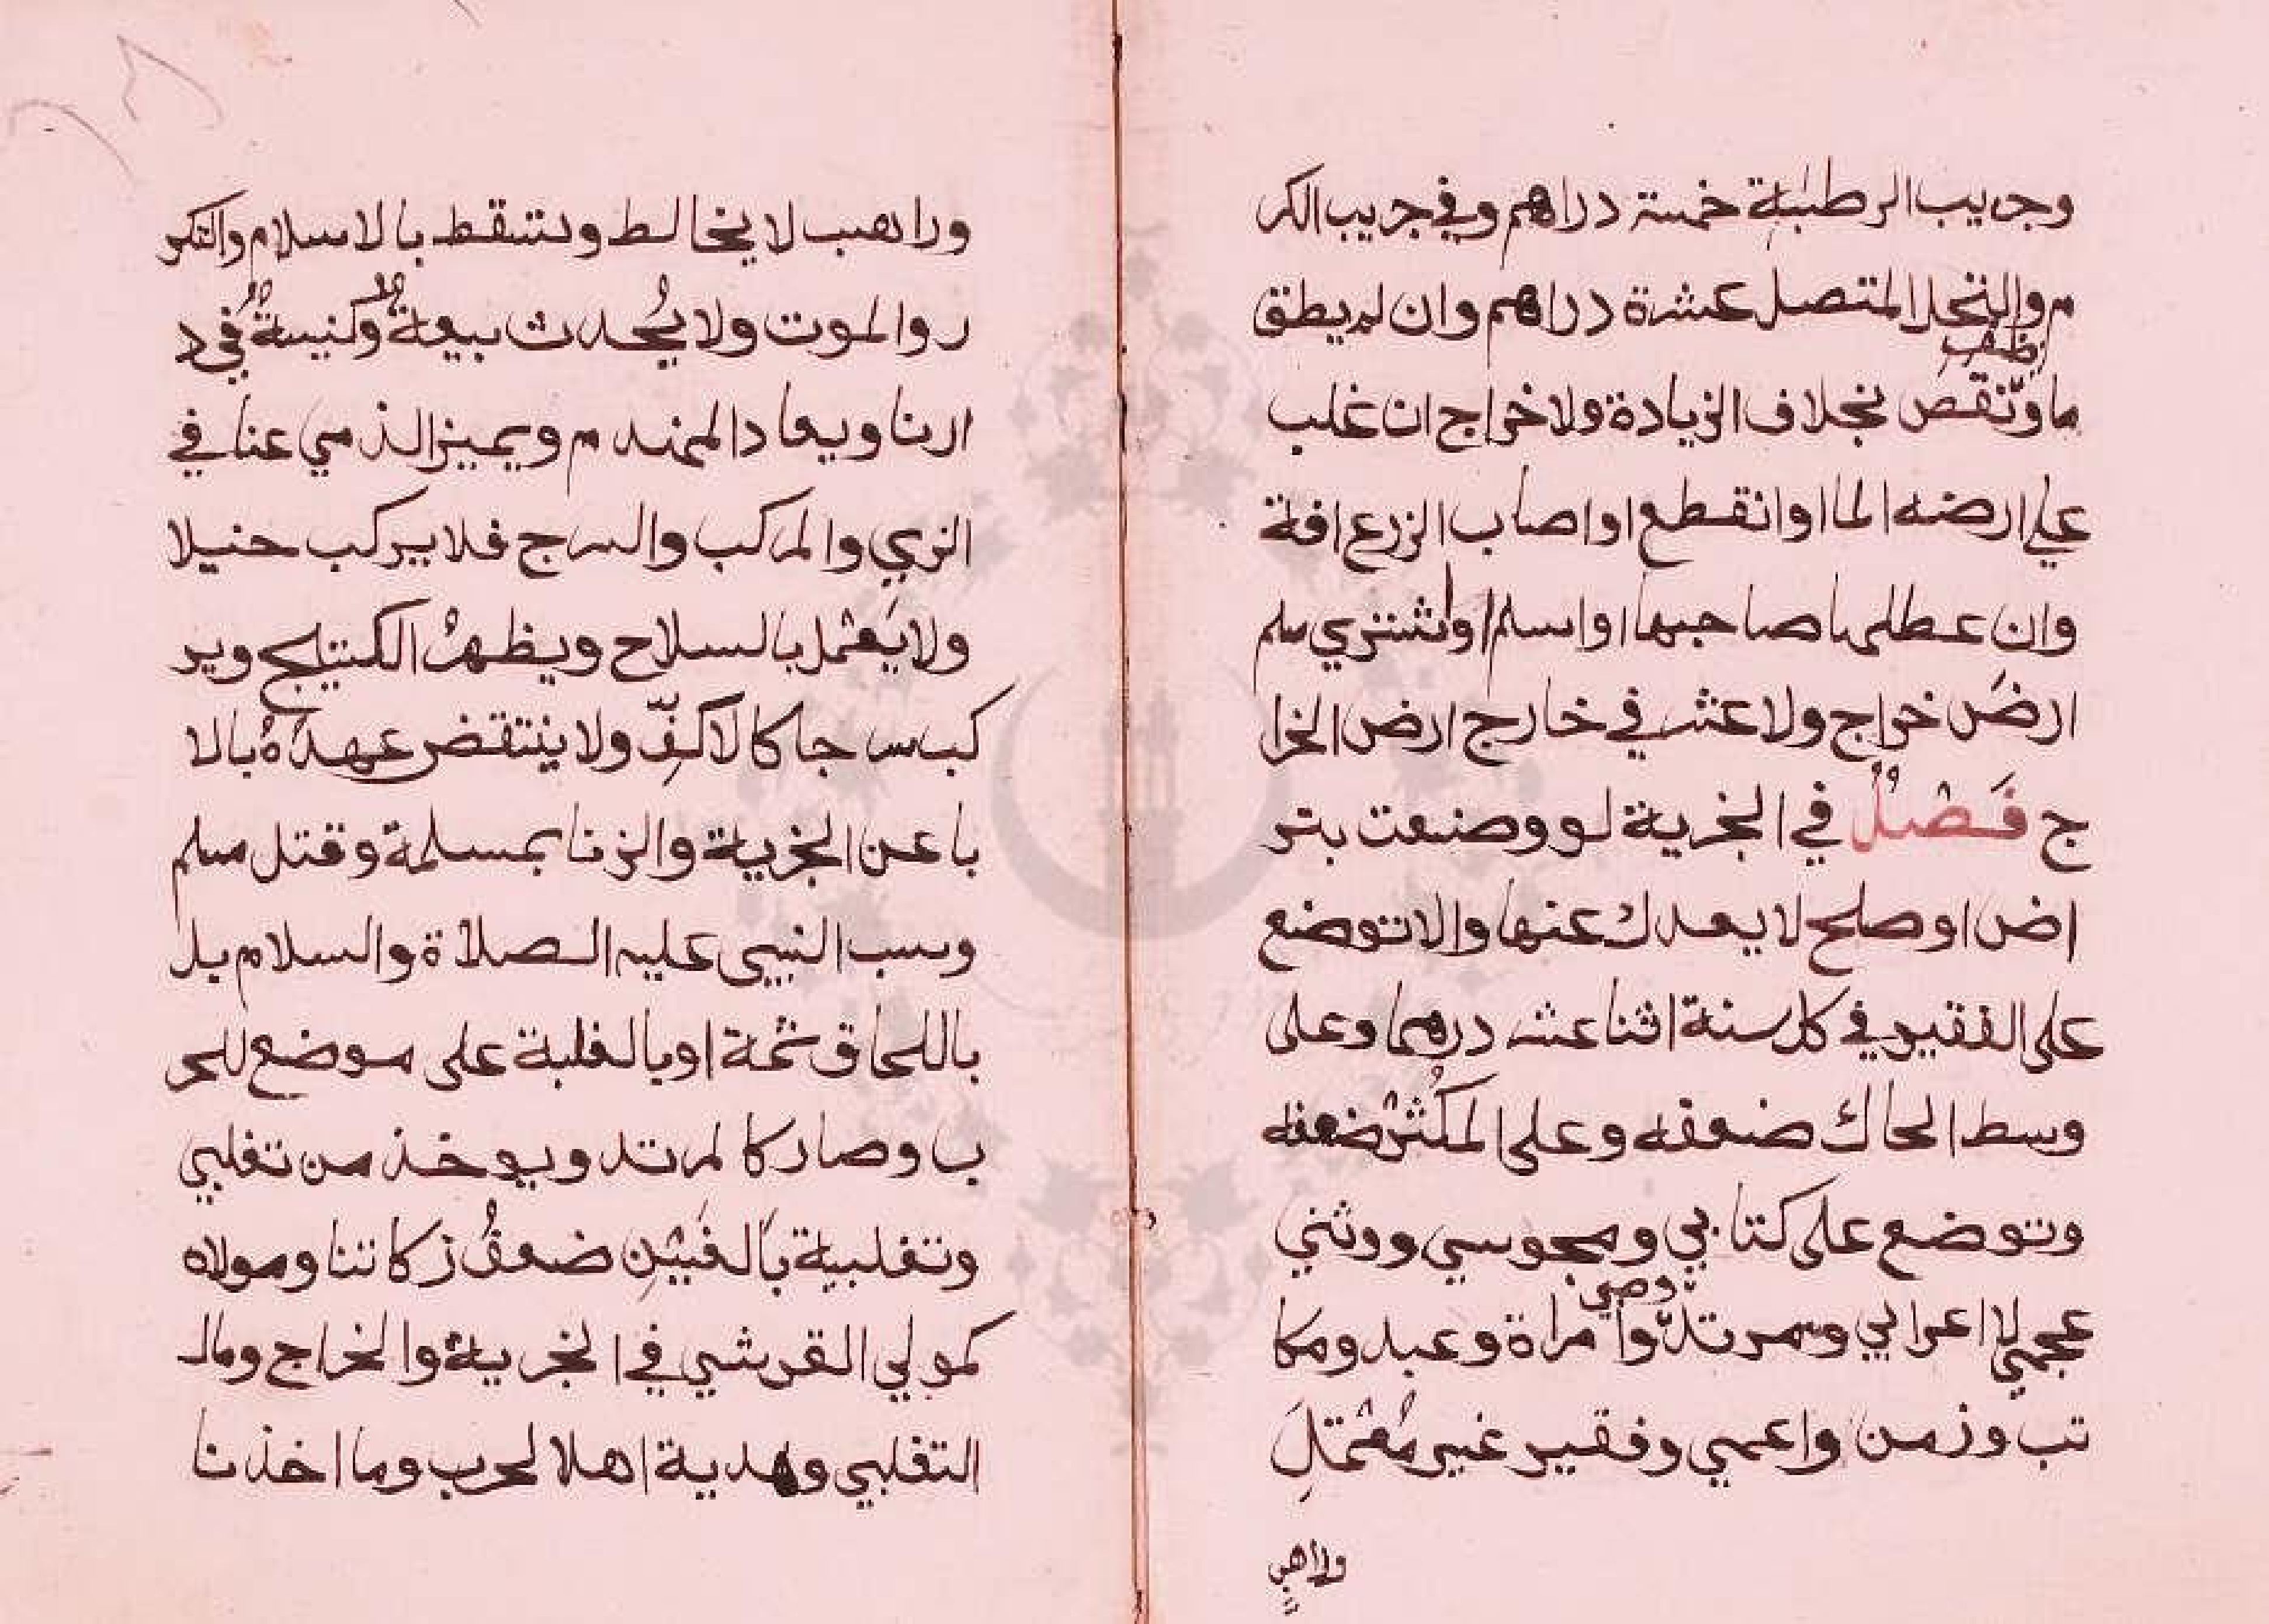 وجريب الرطبة خمسة دراهم وفي جريب الكر
م والنخل المتصل عشرة دراهم وان لم يطق
ما وظف
نقص بخلاف الزيادة ولا خراج ان غلب
علي ارضه الما او انقطع او اصاب الزرع افة
وان عطلها صاحبها او اسلم او اشتري مسلم
ارض خراج ولا عشر في خارج ارض الخرا
ج فصل في الجزية لو وضعت بتر
اض او صلح لا يعدل عنها والا توضع
على الفقير في كل سنة اثنا عشر درهما وعلى
وسط الحال ضعفه وعلى المكثر ضعفه
وتوضع على كتابي ومجوسي ووثني
عجمي لا اعرابي ومرتد وصبي وامراة وعبد ومكا
تب وزمن واعمي وفقير غير معتمل
وراهب
وراهب لا يخالط وتسقط بالاسلام والتكر
ر والموت ولا يحدث بيعة وكنيسة في د
ارنا ويعاد المنهدم ويميز الذمي عنا في
الزي والمركب والسرج فلا يركب خيلا
ولا يعمل بالسلاح ويظهر الكستيج وير
كب سرجا كالاكف ولا ينتقض عهده بالا
با عن الجزية والزنا بمسلمة وقتل مسلم
وسب النبي عليه الصلاة والسلام بل
باللحاق ثمة او بالغلبة على موضع للحر
ب وصار كالمرتد ويوخذ من تغلبي
وتغلبية بالغين ضعف زكاتنا ومولاه
كمولي القرشي في الجزية والخراج ومال
التغلبي وهدية اهل الحرب وما اخذنا